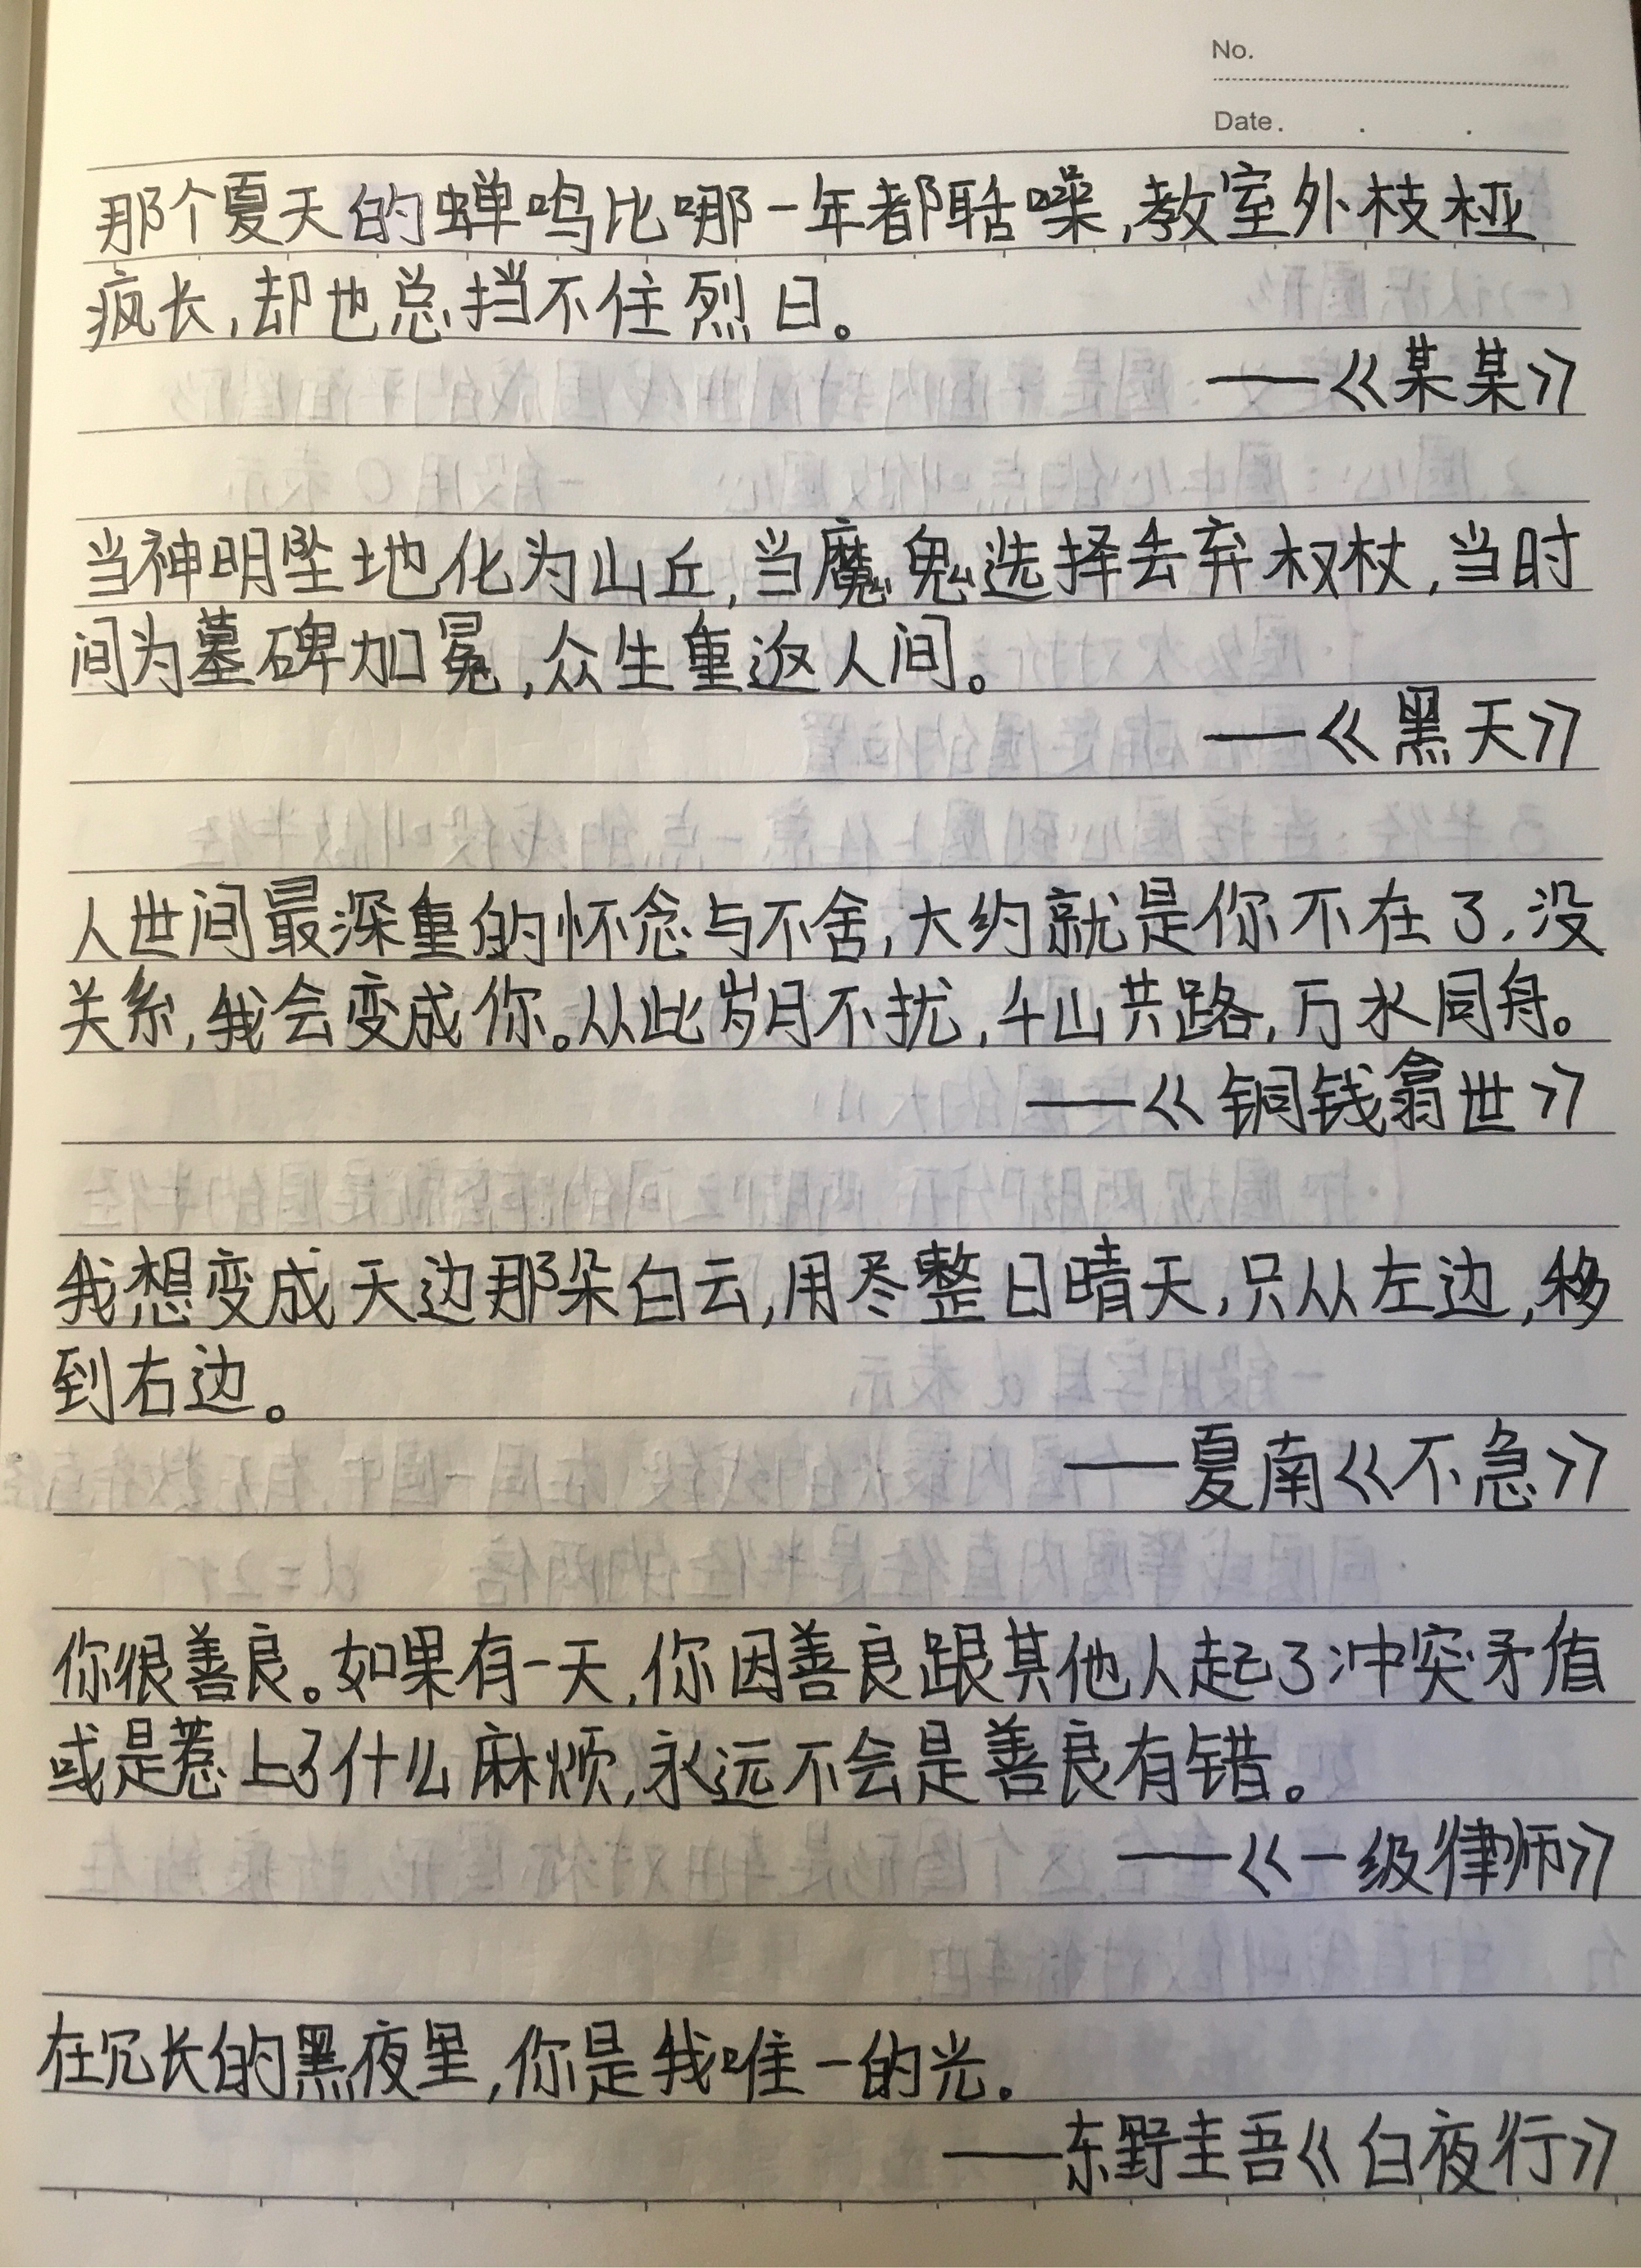 No.
Date.
那个夏天的蝉鸣比哪一年都聒噪,教室外枝桠
疯长,却也总挡不住烈日。
——《某某》
当神明坠地化为山丘,当魔鬼选择丢弃权杖,当时
间为墓碑加冕,众生重返人间。
——《黑天》
人世间最深重的怀念与不舍,大约就是你不在了,没
关系,我会变成你。从此岁月不扰,千山共路,万水同舟。
——《铜钱龛世》
我想变成天边那朵白云,用尽整日晴天,只从左边,移
到右边。
——夏南《不急》
你很善良。如果有一天,你因善良跟其他人起了冲突矛值
或是惹上了什么麻烦,永远不会是善良有错。
——《一级律师》
在冗长的黑夜里,你是我唯一的光。
——东野圭吾《白夜行》